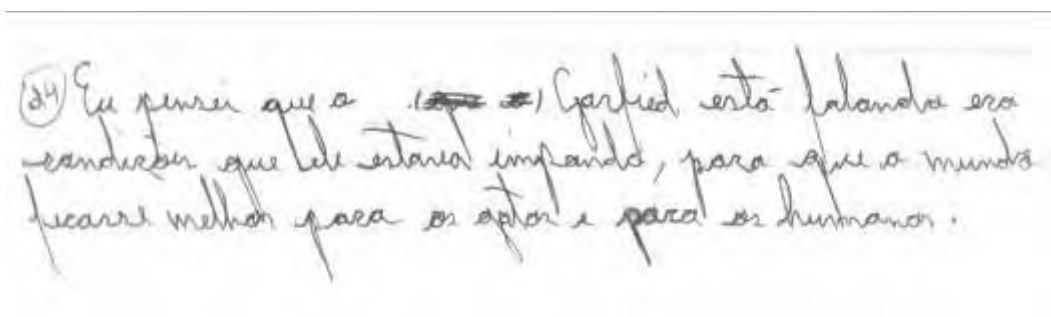 24 Eu pensei que o Garfied está falando era
condições que ele estaria impondo, para que o mundo
ficasse melhor para os gatos e para os humanos.